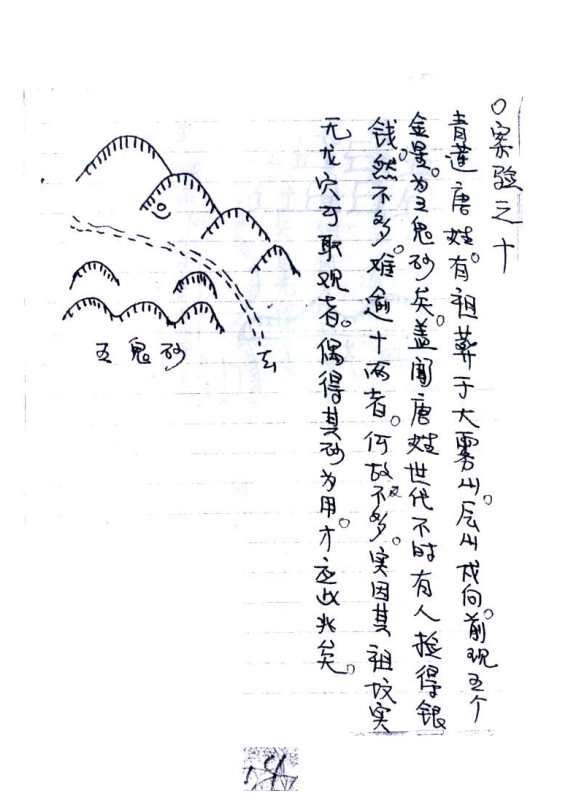 〇案验之十
青莲唐姓。有祖葬于大雾山。辰山戌向。前现五个
金星。为五鬼砂矣。盖闻唐姓世代不时有人捡得银
钱。然不多。难逾十两者。何故不多。实因其祖坟实
无龙穴可取观者。偶得其砂为用。才应此兆矣。
五鬼砂